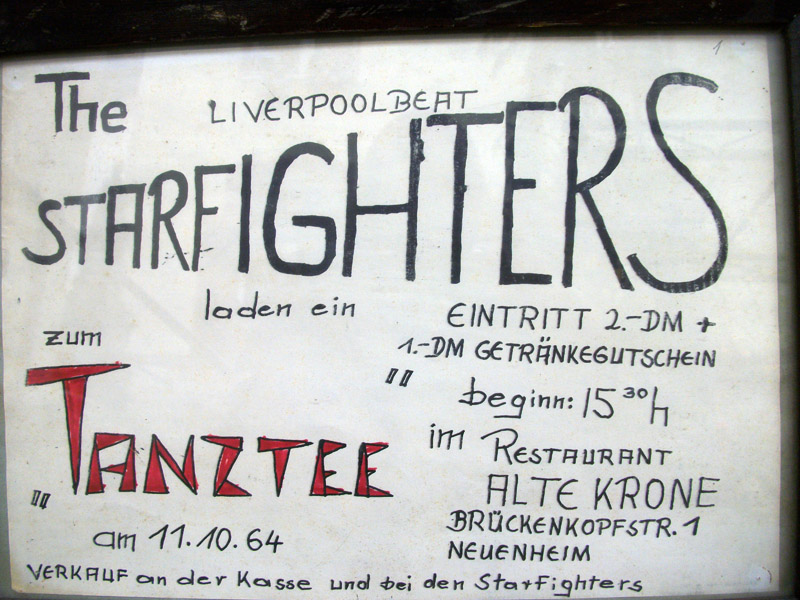 1
The LIVERPOOLBEAT
STARFIGHTERS
laden ein
zum
„TANZTEE"
am 11.10.64
EINTRITT 2.-DM +
1.-DM GETRÄNKEGUTSCHEIN
beginn: 15³⁰h
im RESTAURANT
ALTE KRONE
BRÜCKENKOPFSTR. 1
NEUENHEIM
VERKAUF an der Kasse und bei den Starfighters